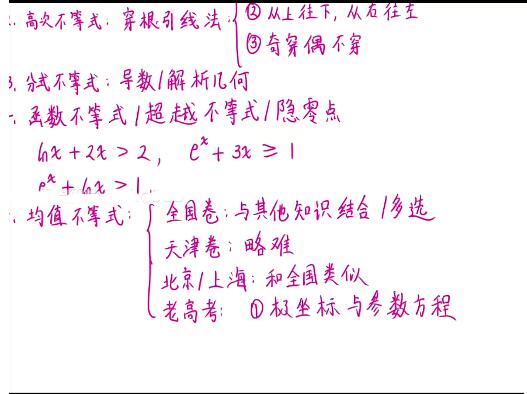 ②从上往下，从右往左
高次不等式：穿根引线法：
③奇穿偶不穿
分式不等式：导数/解析几何
函数不等式/超越不等式/隐零点
lnx+2x>2， eˣ+3x≥1
eˣ+lnx>1.
均值不等式：
全国卷：与其他知识结合/多选
天津卷：略难
北京/上海：和全国类似
老高考： ①极坐标与参数方程